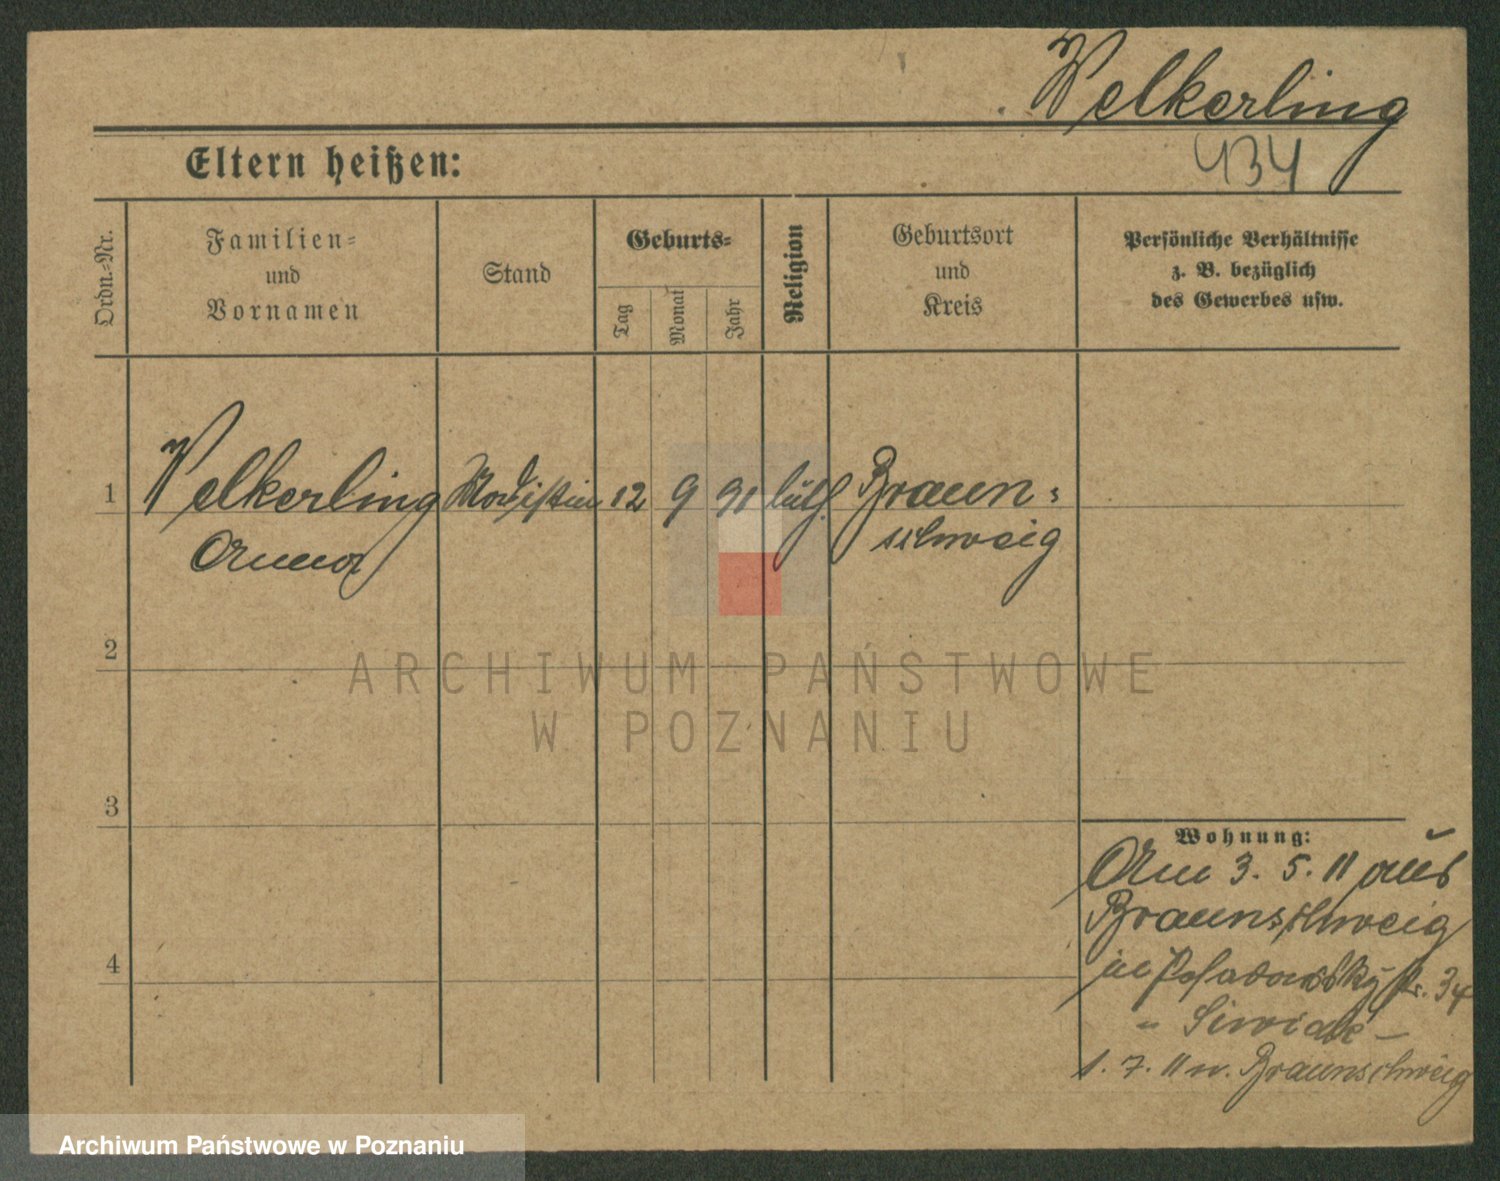 Welkerling
434
Eltern heißen:
Ordn.-Nr.
Familien-
und
Vornamen
Stand
Geburts-
Tag
Monat
Jahr
Religion
Geburtsort
und
Kreis
Persönliche Verhältnisse
z. B. bezüglich
des Gewerbes usw.
1 Welkerling Modistin 12 9 91 luth. Braun-
Anna schweig
2
3
4
Wohnung:
Am 3. 5. 11 aus
Braunschweig
in Posadowskystr. 34
" Siwiak –
1. 7. 11 n. Braunschweig
ARCHIWUM PAŃSTWOWE
W POZNANIU
Archiwum Państwowe w Poznaniu